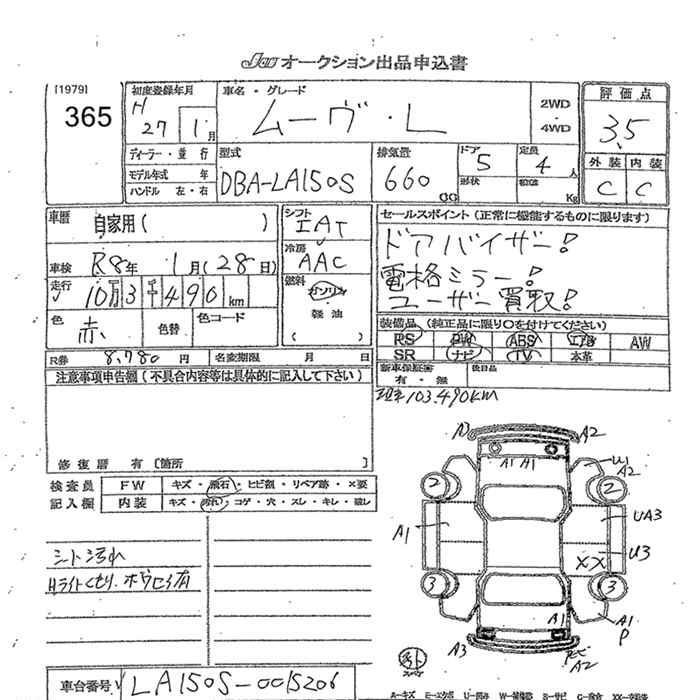 JAA オークション出品申込書
[1979]
365
初度登録年月
H
27 1月
車名・グレード
ムーヴ・L
2WD
4WD
評価点
3.5
外装 内装
C C
ディーラー・並行
モデル年式 年
ハンドル 左・右
型式
DBA-LA150S
排気量
660
CC
ドア
5
形状
定員
4人
積載 Kg
車歴 自家用( )
シフト
IAT
セールスポイント(正常に機能するものに限ります)
ドアバイザー!
電格ミラー!
ユーザー買取!
車検 R8年 1月(28日)
冷房
AAC
走行
10万3千490km
燃料
ガソリン
軽油
( )
色
赤
色替
色コード
装備品(純正品に限り○を付けてください)
RS PW ABS エアB AW
SR ナビ TV 本革
R券 8,780円
名変期限 月 日
新車保証書
有・無
後日品
注意事項申告欄(不具合内容等は具体的に記入して下さい)
現車103.490km
修復歴 有 〔箇所 〕
検査員
記入欄
FW キズ・飛石・ヒビ割・リペア跡・×要
内装 キズ・汚れ・コゲ・穴・スレ・キレ・破レ
シート汚れ
Hライトくもり.
A2
A1 A1
U1
A2
2
2
A1
UA3
U3
XX
3
3
A1
A1
P
A3
A2
車台番号 LA150S-0015206